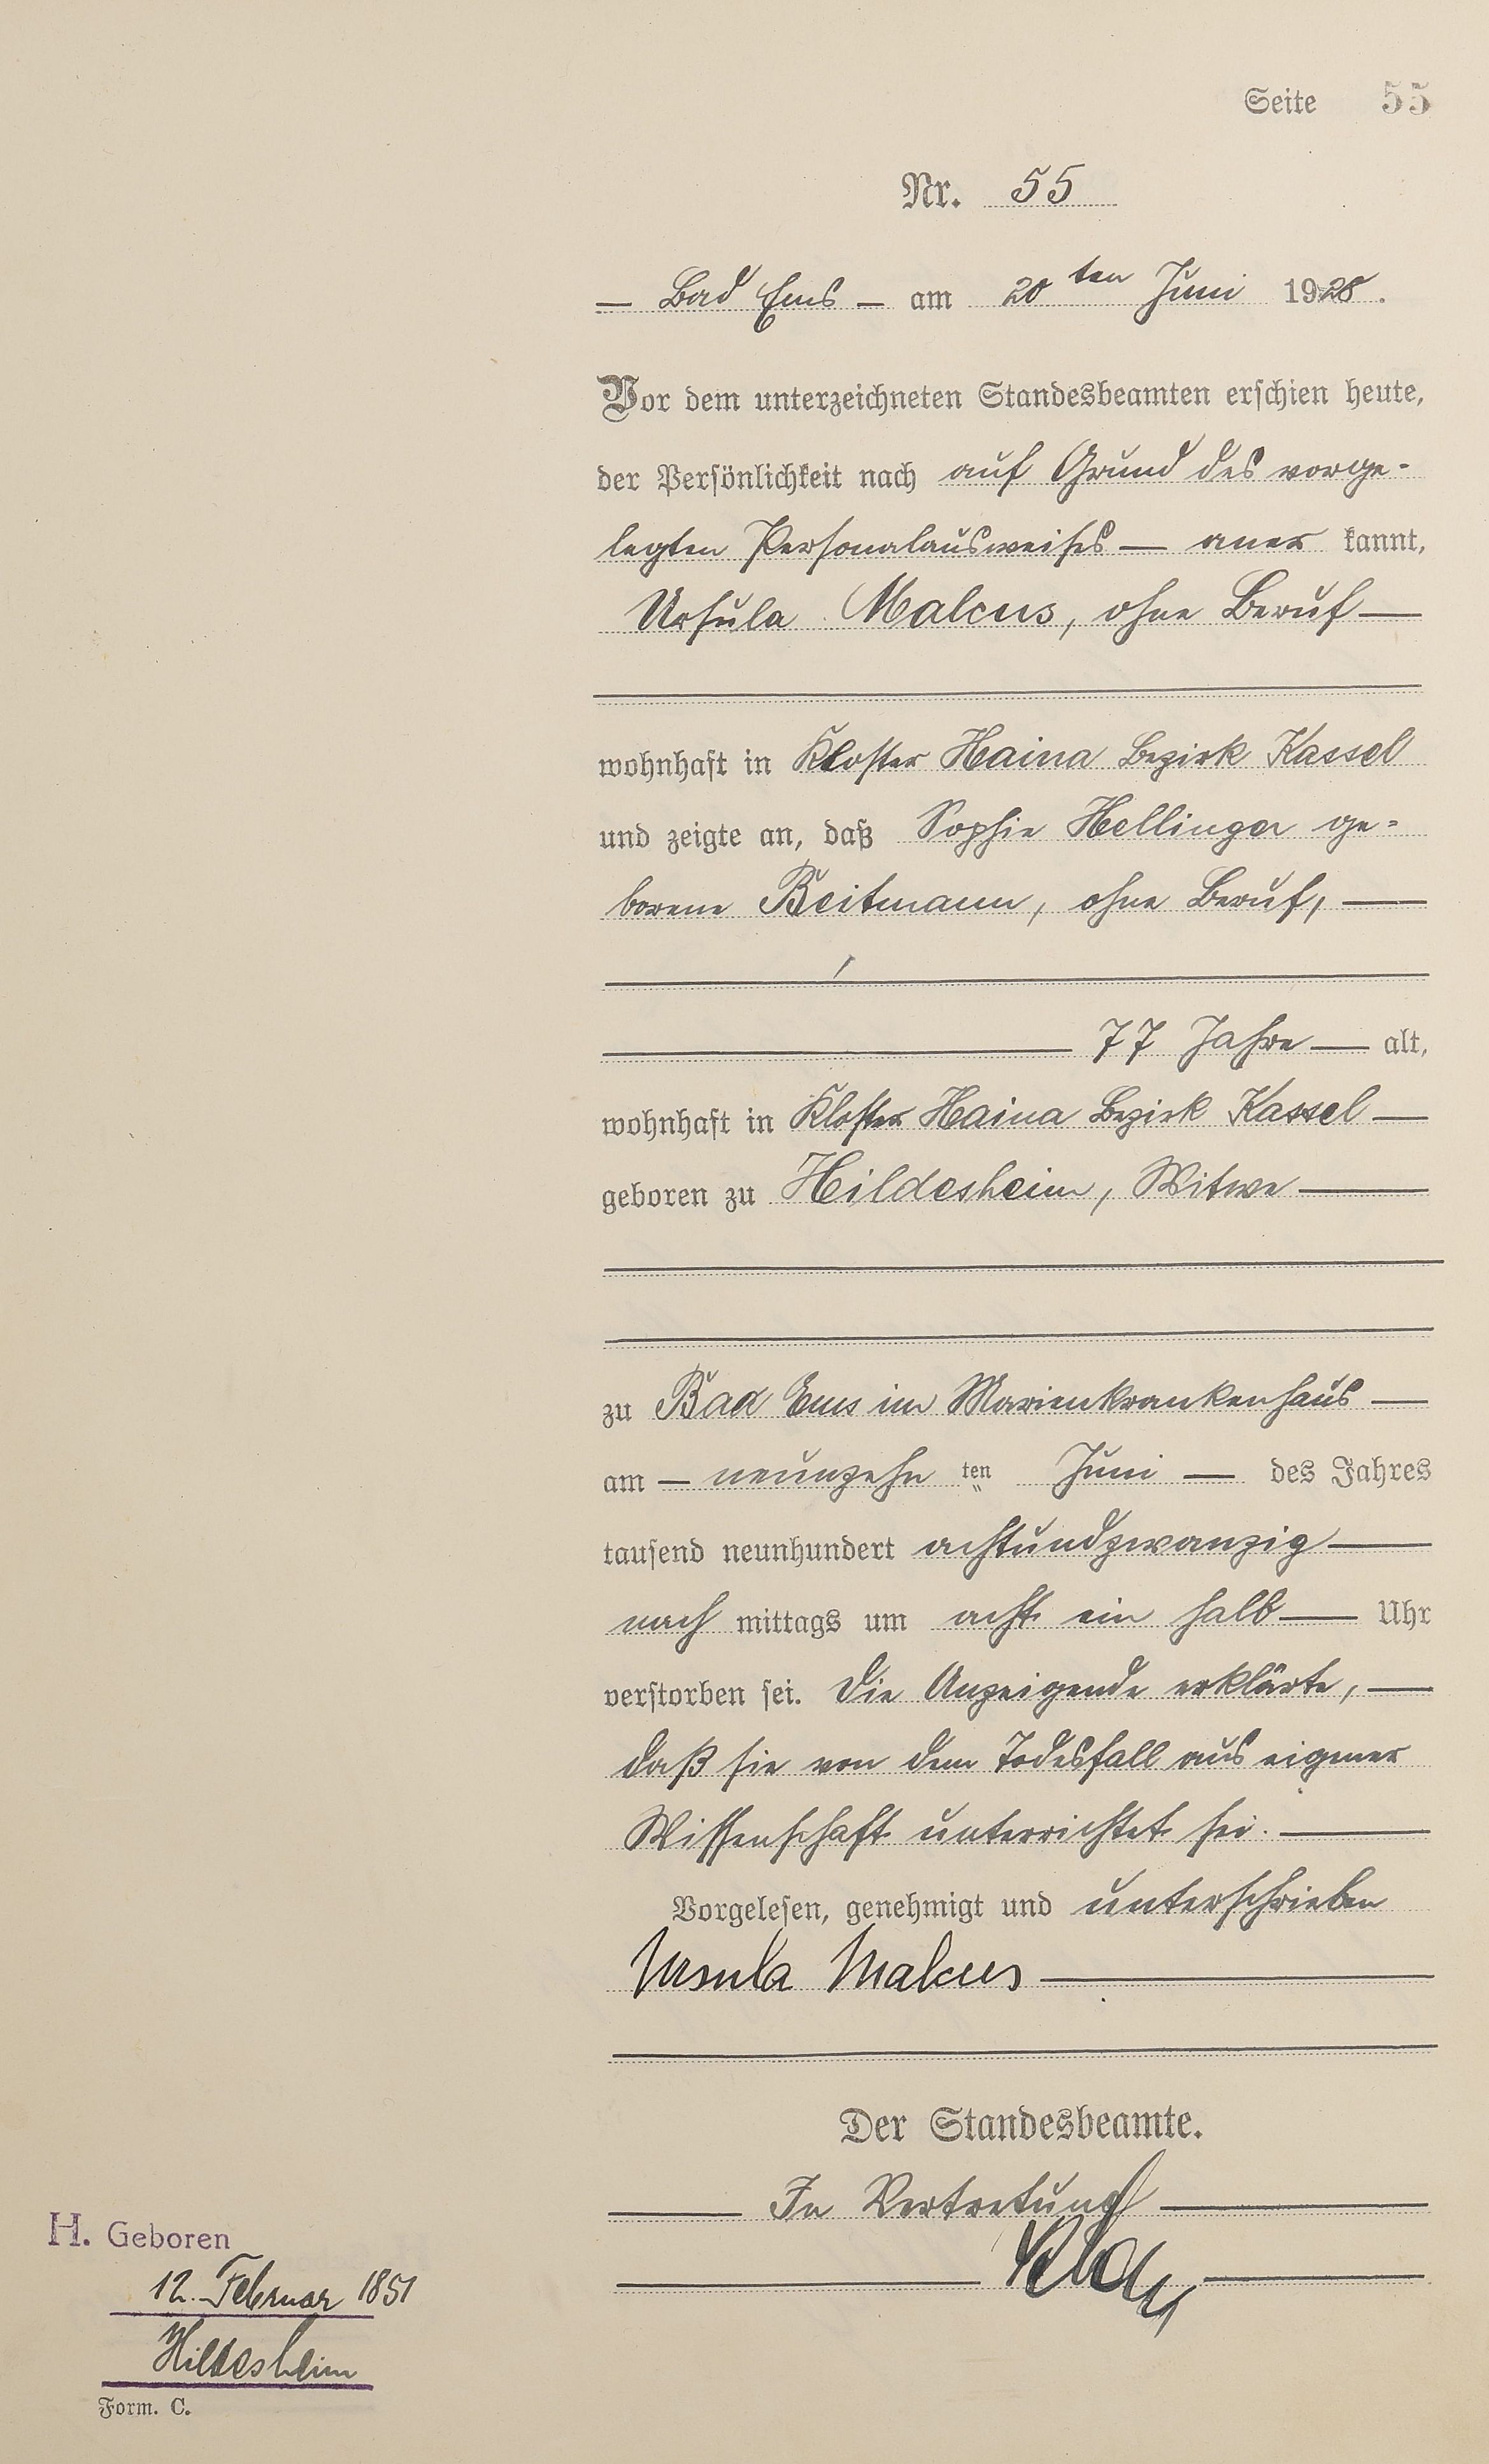 Seite 55
Nr. 55
— Bad Ems — am 20ten Juni 1928.
Vor dem unterzeichneten Standesbeamten erschien heute,
der Persönlichkeit nach auf Grund des vorge-
legten Personalausweises — aner kannt,
Ursula Malcus, ohne Beruf —
wohnhaft in Kloster Haina Bezirk Kassel
und zeigte an, daß Sophie Hellinger ge-
borene Beitmann, ohne Beruf, —
77 Jahre — alt,
wohnhaft in Kloster Haina Bezirk Kassel —
geboren zu Hildesheim, Witwe —
zu Bad Ems im Marienkrankenhaus —
am — neunzehn ten Juni — des Jahres
tausend neunhundert achtundzwanzig —
nach mittags um acht ein halb — Uhr
verstorben sei. Die Anzeigende erklärte, —
daß sie von dem Todesfall aus eigener
Wissenschaft unterrichtet sei. —
Vorgelesen, genehmigt und unterschrieben
Ursula Malcus —
Der Standesbeamte.
— In Vertretung —
H. Geboren
12. Februar 1851
Hildesheim
Form. C.